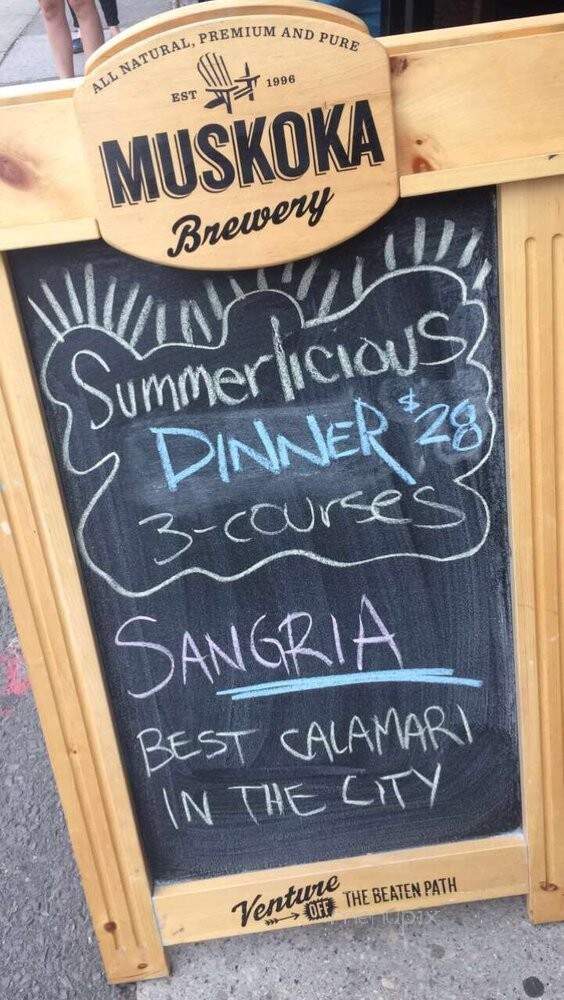 ALL NATURAL, PREMIUM AND PURE
EST 1996
MUSKOKA
Brewery
Summerlicious
DINNER $28
3-courses
SANGRIA
BEST CALAMARI
IN THE CITY
Venture
OFF THE BEATEN PATH